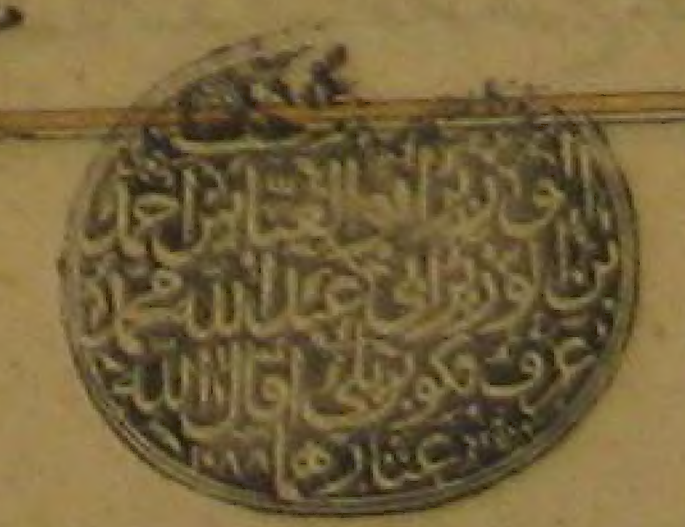 الوزير ابو العباس احمد
بن الوزير ابى عبد الله محمد
عرف بكوبريلى اقال الله
عثارهما ١٠٨٨